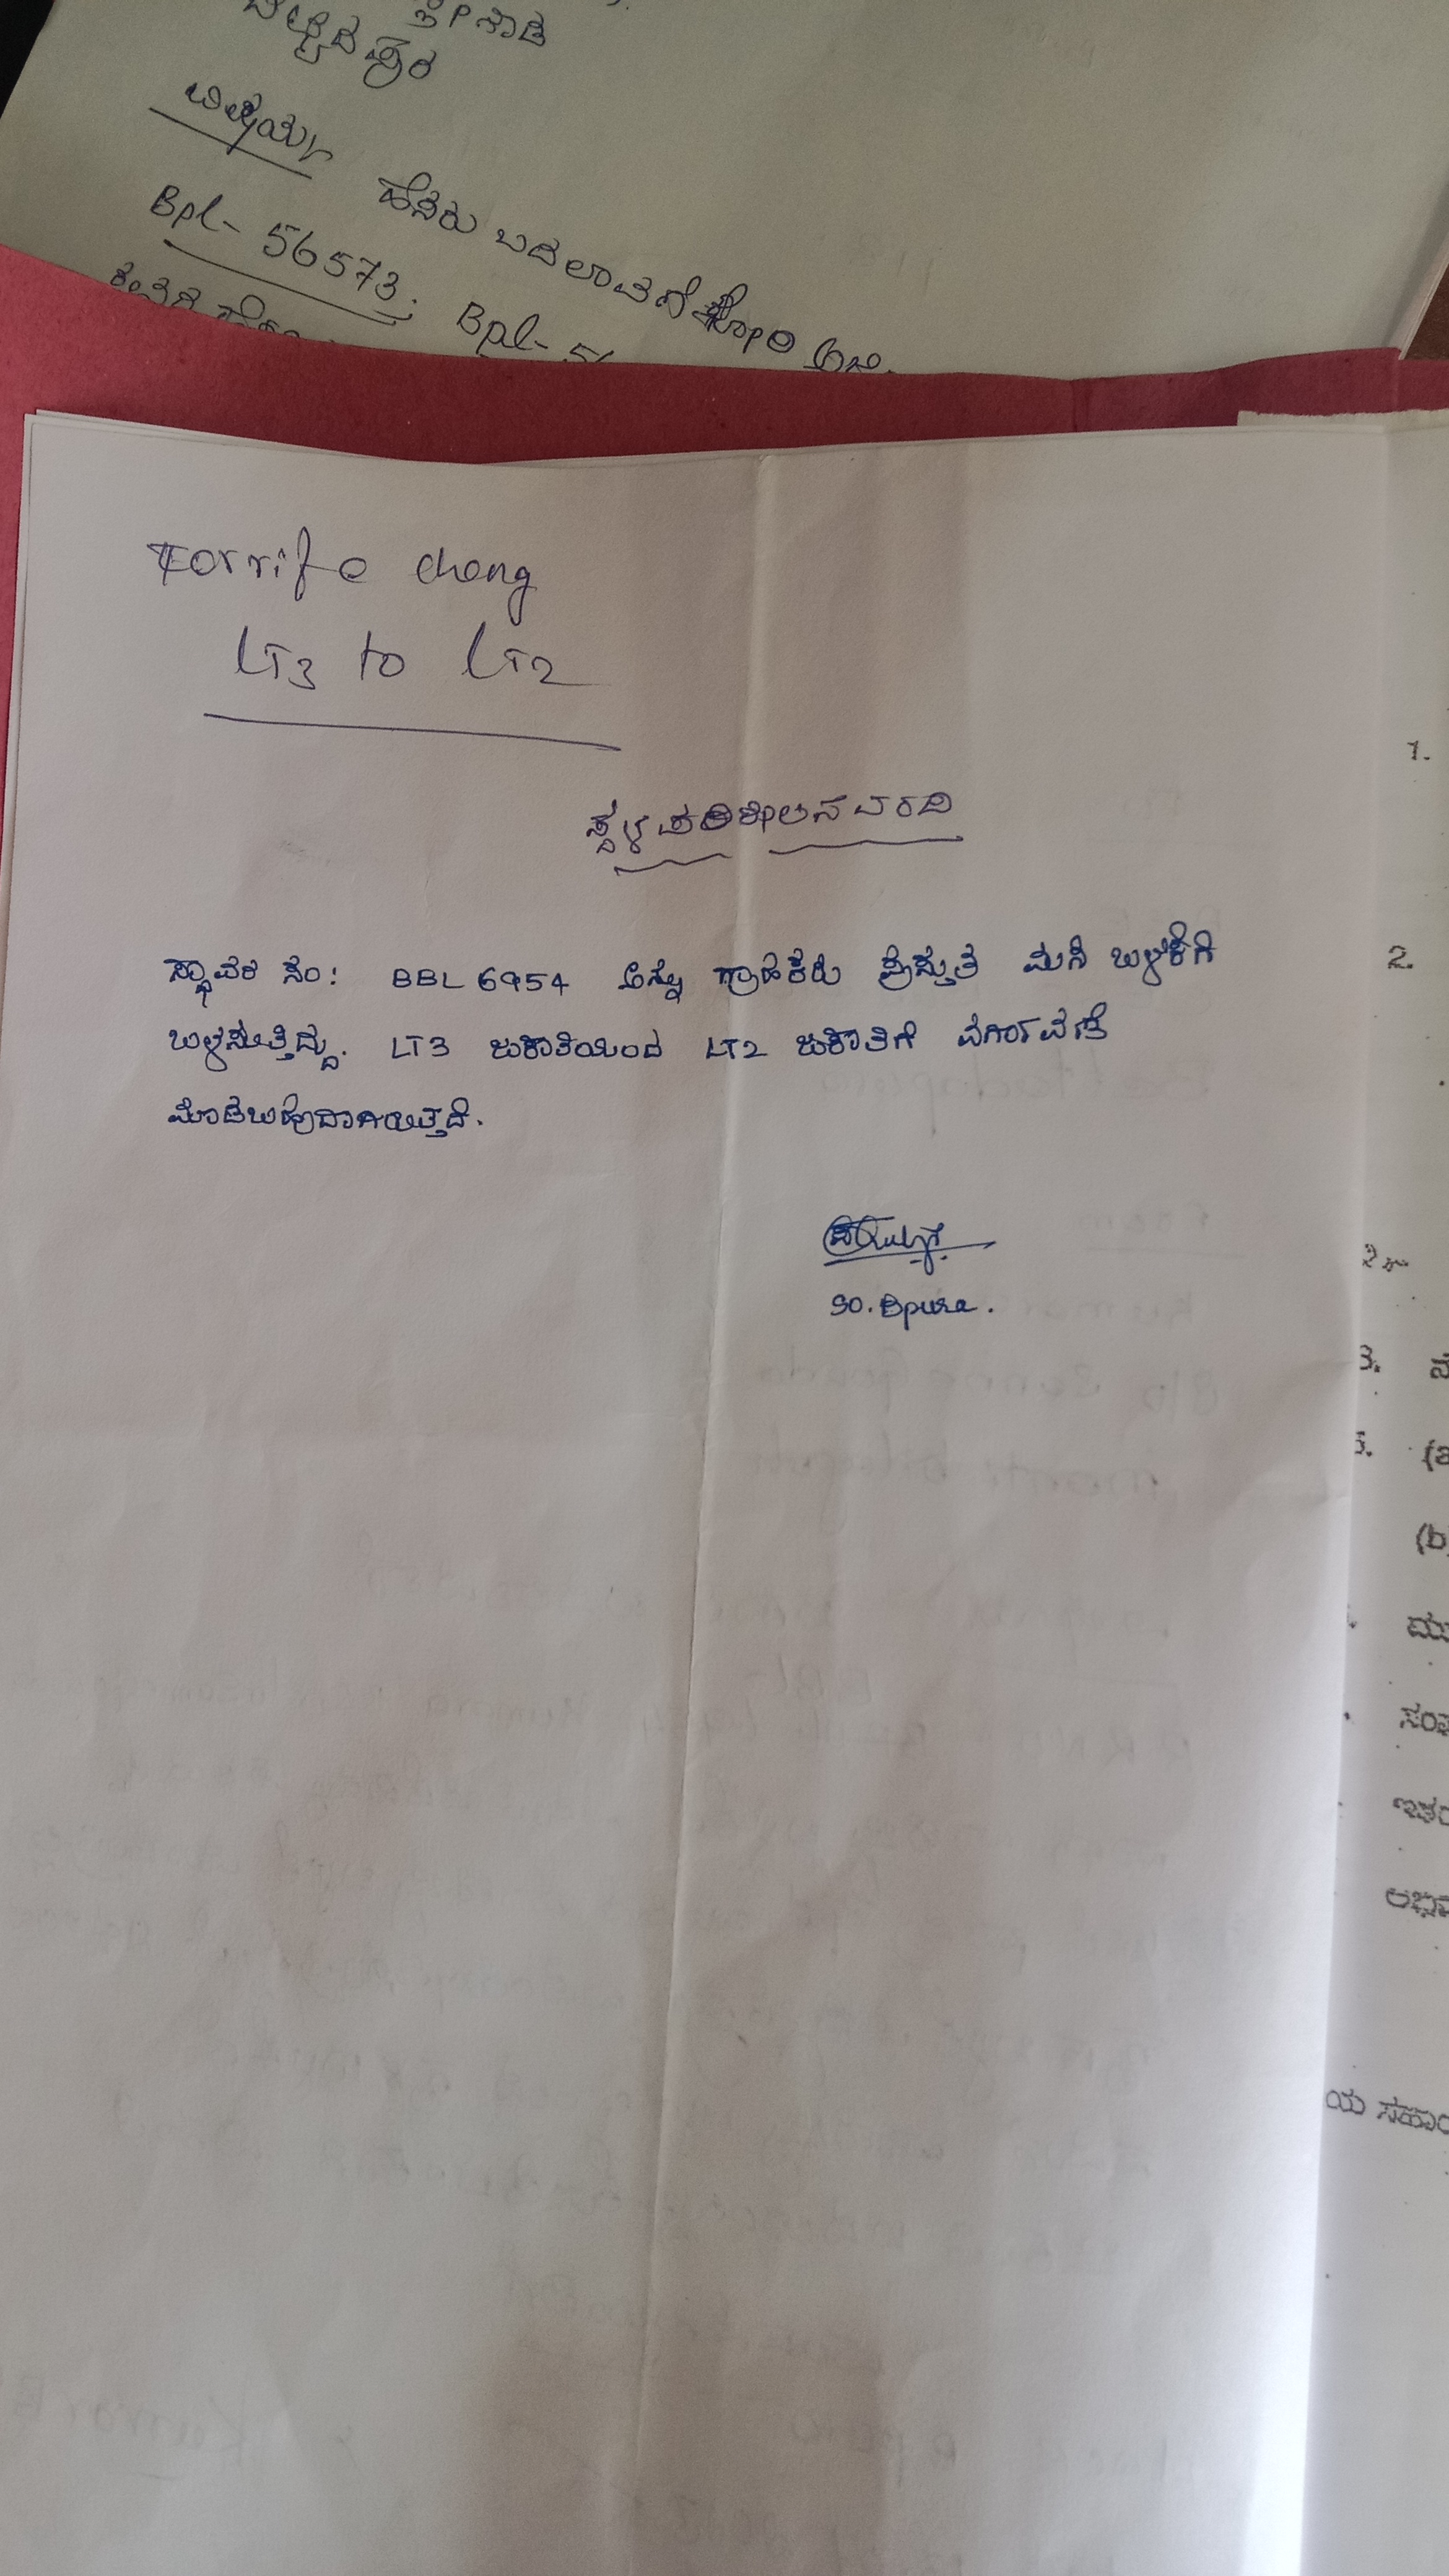 ತೀಸಾಡಿ
ವಿಷಯ:
ಹೆಸರು ಬದಲಾವಣೆ ಕೋರಿ
Bpl- 56573. Bpl- 56
Torrife cheng
LT3 to LT2
ಸ್ಥಳ ಪರಿಶೀಲನ ವರದಿ
ಸ್ಥಾವರ ನಂ: BBL 6954 ಅನ್ನು ಗ್ರಾಹಕರು ಪ್ರಸ್ತುತ ಮನೆ ಬಳಕೆಗೆ
ಬಳಸುತ್ತಿದ್ದು. LT3 ಜಕಾತಿಯಿಂದ LT2 ಜಕಾತಿಗೆ ವರ್ಗಾವಣೆ
ಮಾಡಬಹುದಾಗಿರುತ್ತದೆ.
SO. Bpura.
1.
2.
3.
5. (a
(b)
ಮು
ಸಂಖ
ಇತರ
ಅಭ್ಯಾ
ಯ ಸಹಾಯ